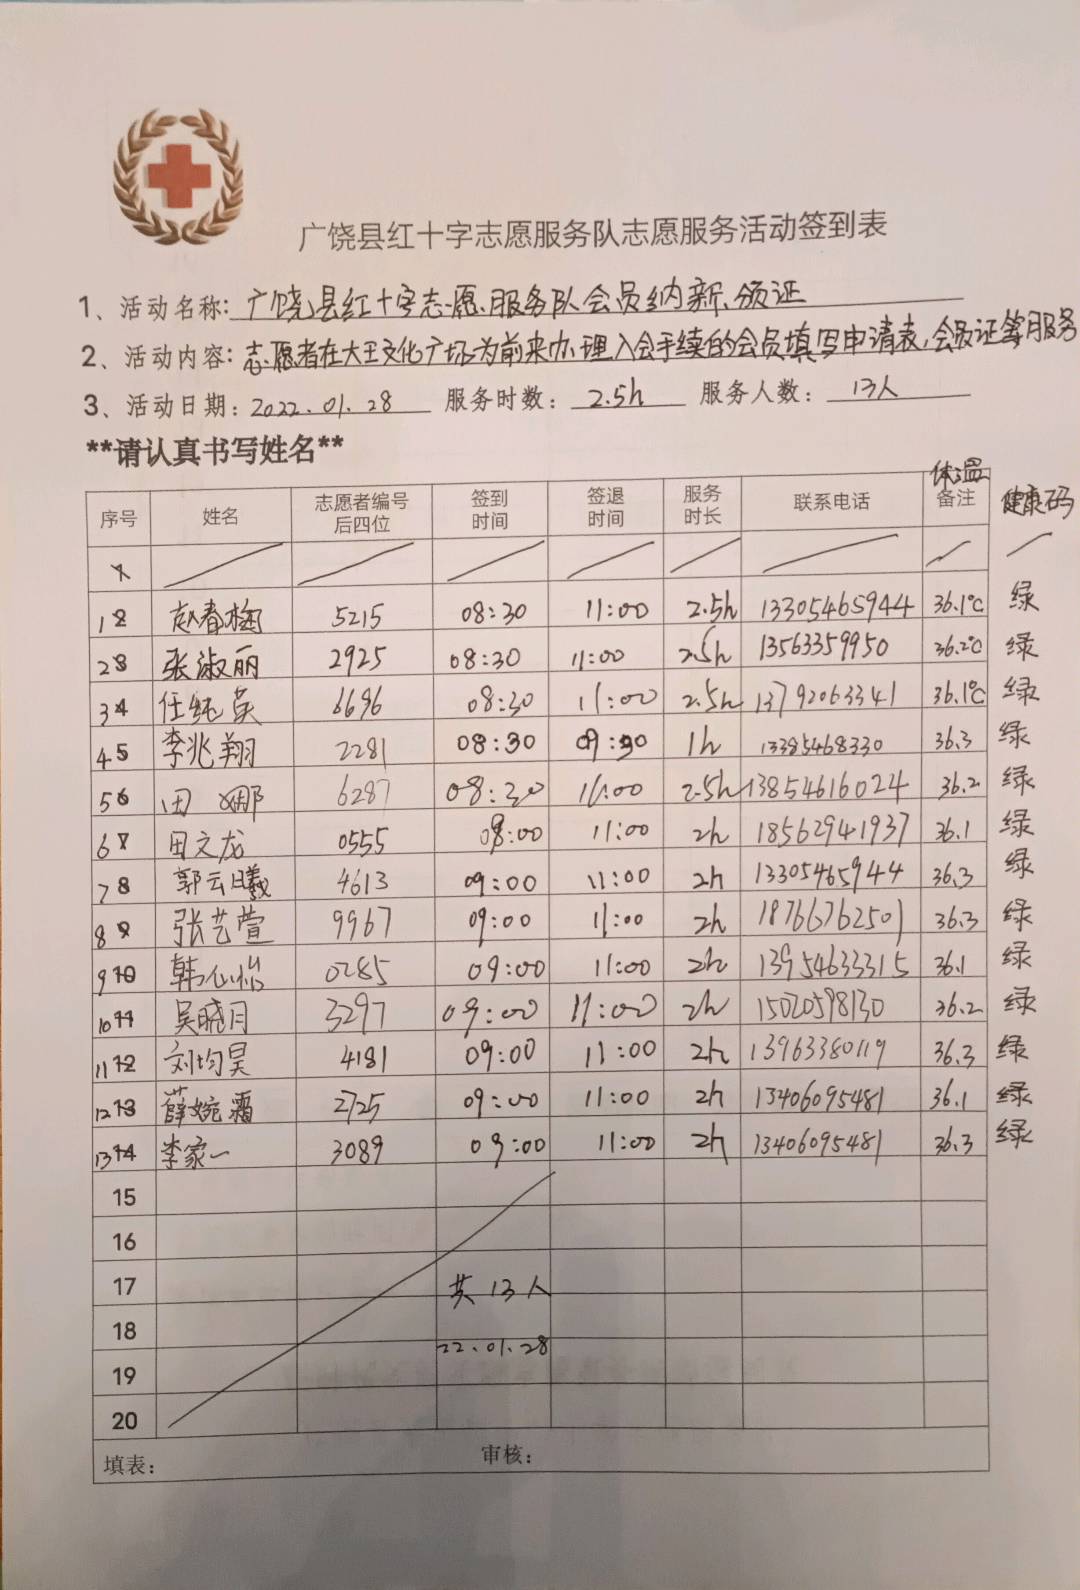 广饶县红十字志愿服务队志愿服务活动签到表
1、活动名称:广饶县红十字志愿服务队会员纳新、颁证
2、活动内容:志愿者在大王文化广场为前来办理入会手续的会员填写申请表,会员证等服务
3、活动日期:2022.01.28 服务时数:2.5h 服务人数:13人
**请认真书写姓名**
序号 姓名 志愿者编号后四位 签到时间 签退时间 服务时长 联系电话 体温 备注 健康码
1 赵春梅 5215 08:30 11:00 2.5h 13305465944 36.1℃ 绿
2 张淑丽 2925 08:30 11:00 2.5h 13563359950 36.2℃ 绿
3 任纯英 6696 08:30 11:00 2.5h 13792063341 36.1℃ 绿
4 李兆翔 2281 08:30 09:30 1h 13385468330 36.3 绿
5 田娜 6287 08:30 11:00 2.5h 13854616024 36.2 绿
6 田文龙 0555 09:00 11:00 2h 18562941937 36.1 绿
7 郭云曦 4613 09:00 11:00 2h 13305465944 36.3 绿
8 张艺萱 9967 09:00 11:00 2h 18766762501 36.3 绿
9 韩心怡 0285 09:00 11:00 2h 13954633315 36.1 绿
10 吴晓月 3297 09:00 11:00 2h 15020598130 36.2 绿
11 刘均昊 4181 09:00 11:00 2h 13963380119 36.3 绿
12 薛婉霜 2725 09:00 11:00 2h 13406095481 36.1 绿
13 李家一 3089 09:00 11:00 2h 13406095481 36.3 绿
15
16
17 共13人
18 22.01.28
19
20
填表: 审核: